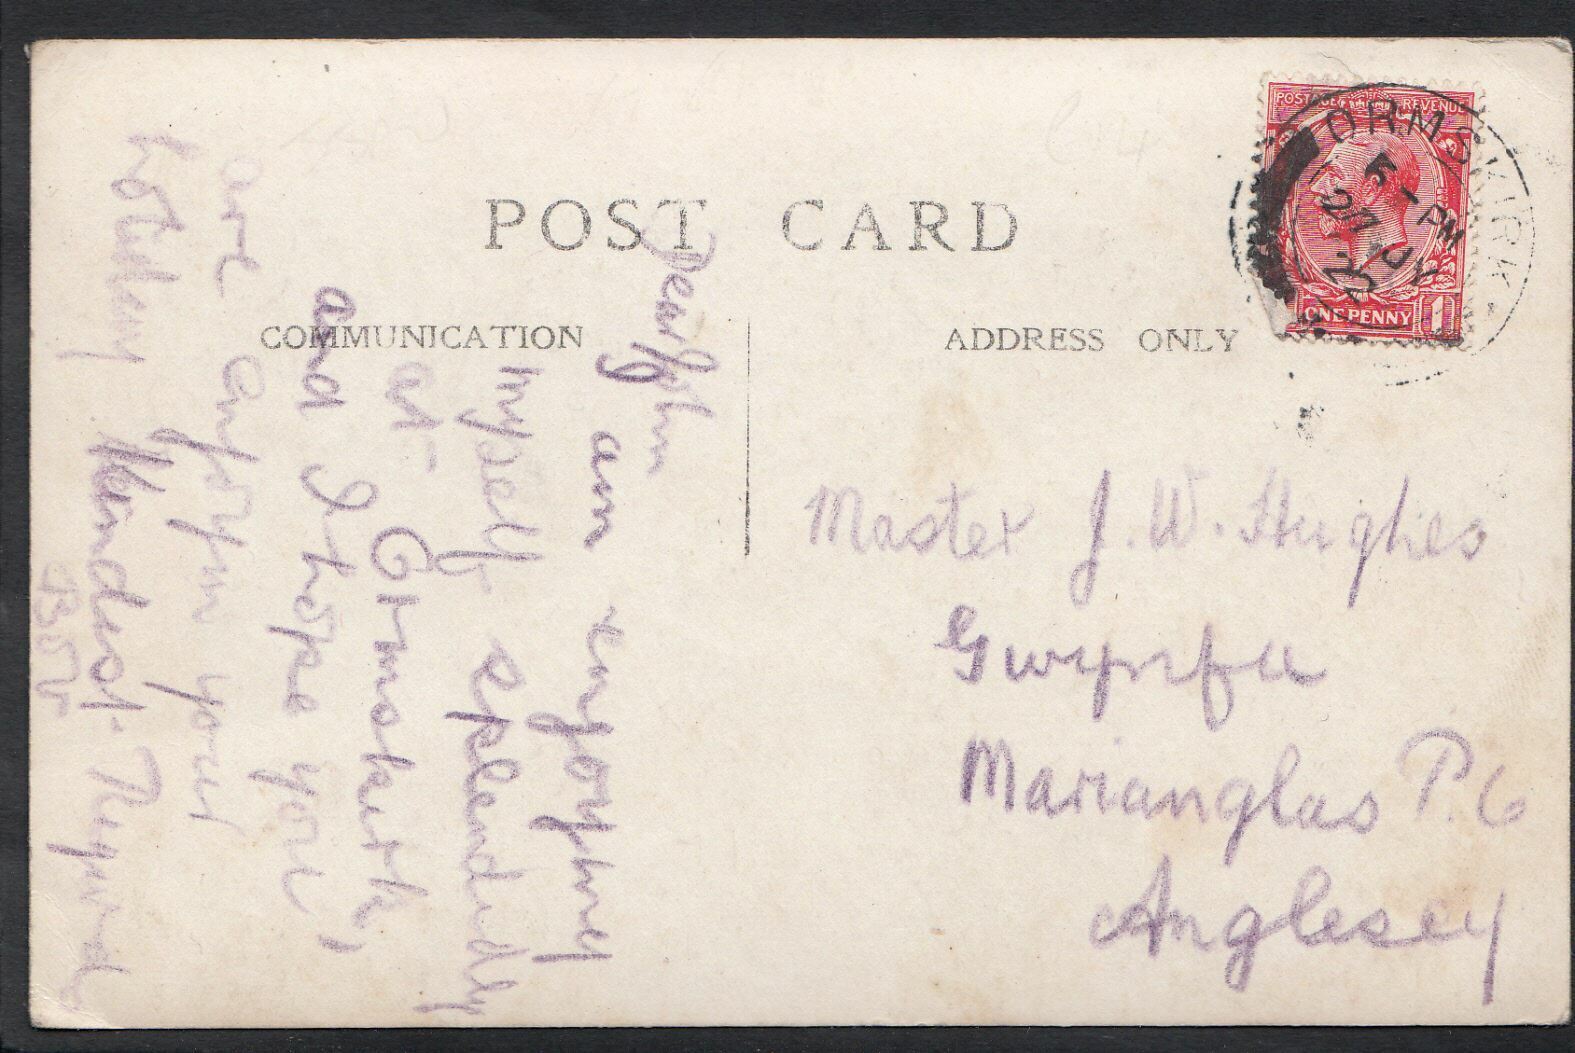 POST CARD
COMMUNICATION
ADDRESS ONLY
POSTAGE REVENUE
ONE PENNY 1
ORMSKIRK
5 - PM
27 JY
Dear John
I am enjoying
myself splendidly
at Ormskirk,
and I hope you
are enjoyin your
holiday
Kindest
Master J. W. Hughes
Gwynfa
Marianglas P.O
Anglesey